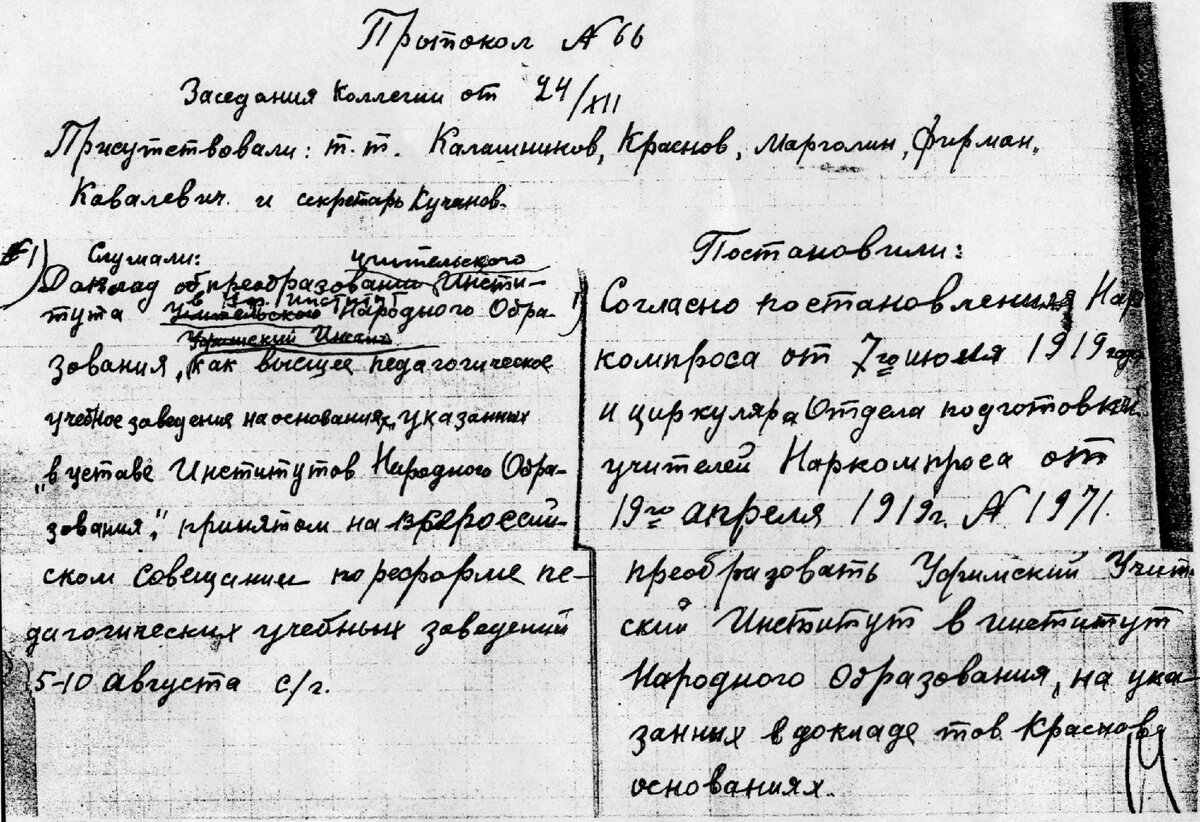 Прытокол № 66
Заседания Коллегии от 24/XII
Присутствовали: т.т. Калашников, Краснов, Марголин, Фирман,
Ковалевич. и секретарь Кучанов.
1) Слушали:
учительского
Доклад об преобразовании Инсти-
в Уф. Институт
тута Учительского Народного Обра-
Уфимский Инсти
зования, как высшее педагогическое
учебное заведения на основаниях, указанных
"в уставе Институтов Народного Обра-
зования," принятом на всероссий-
ском совещании по реформе пе-
дагогических учебных заведений
5-10 Августа с/г.
Постановили:
1) Согласно постановления Нар
компроса от 7го июля 1919 года
и циркуляра Отдела подготовки
учителей Наркомпроса от
19го апреля 1919г. № 1971.
преобразовать Уфимский Учит.
ский Институт в институт
Народного Образования, на ука-
занных в докладе тов. Краснова
основаниях.